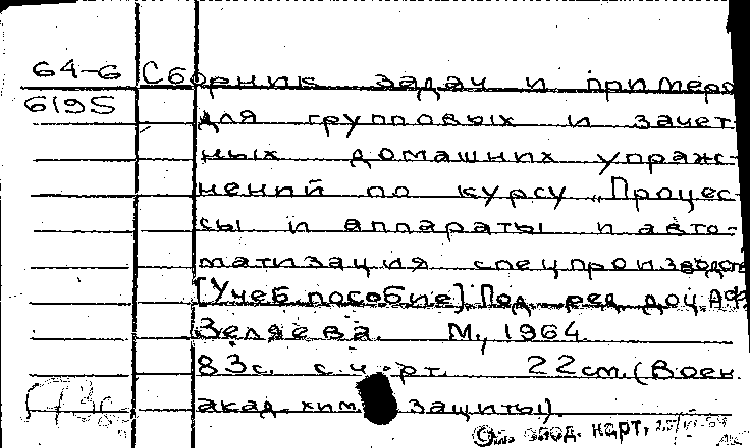 64-6 Сборник задач и примеро
6195 для групповых и зачет-
ных домашних упраж-
нений по курсу „Процес-
сы и аппараты и авто-
матизация спецпроизводств
[Учеб. пособие] Под ред. доц. А.Ф.
Зеляева. М., 1964.
83с. с черт. 22см. (Воен.
акад. хим. защиты).
карт.